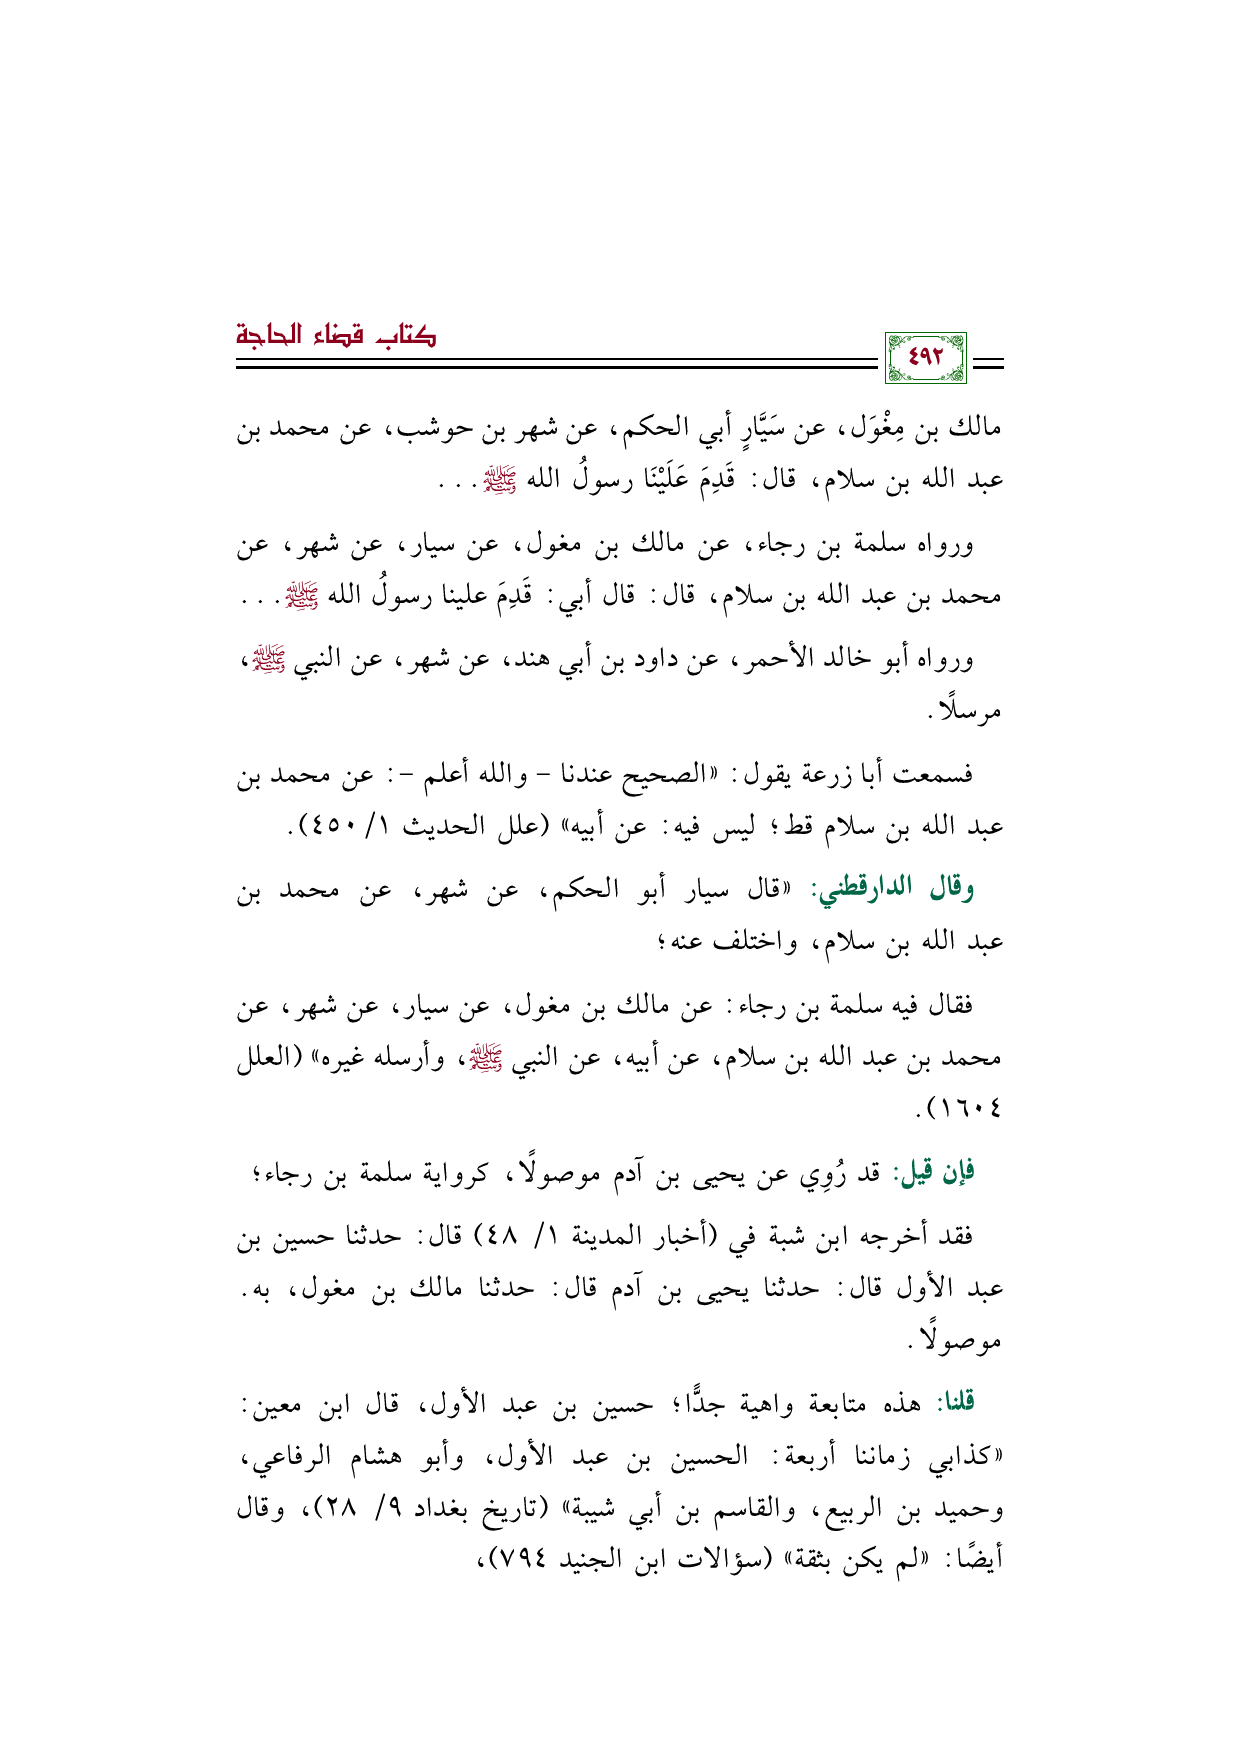 كتاب قضاء الحاجة
٤٩٢
مالك بن مِغْوَل، عن سَيَّارٍ أبي الحكم، عن شهر بن حوشب، عن محمد بن
عبد الله بن سلام، قال: قَدِمَ عَلَيْنَا رسولُ الله ﷺ...
ورواه سلمة بن رجاء، عن مالك بن مغول، عن سيار، عن شهر، عن
محمد بن عبد الله بن سلام، قال: قال أبي: قَدِمَ علينا رسولُ الله ﷺ...
ورواه أبو خالد الأحمر، عن داود بن أبي هند، عن شهر، عن النبي ﷺ،
مرسلًا.
فسمعت أبا زرعة يقول: «الصحيح عندنا - والله أعلم -: عن محمد بن
عبد الله بن سلام قط؛ ليس فيه: عن أبيه» (علل الحديث ١/ ٤٥٠).
وقال الدارقطني: «قال سيار أبو الحكم، عن شهر، عن محمد بن
عبد الله بن سلام، واختلف عنه؛
فقال فيه سلمة بن رجاء: عن مالك بن مغول، عن سيار، عن شهر، عن
محمد بن عبد الله بن سلام، عن أبيه، عن النبي ﷺ، وأرسله غيره» (العلل
١٦٠٤).
فإن قيل: قد رُوِي عن يحيى بن آدم موصولًا، كرواية سلمة بن رجاء؛
فقد أخرجه ابن شبة في (أخبار المدينة ١/ ٤٨) قال: حدثنا حسين بن
عبد الأول قال: حدثنا يحيى بن آدم قال: حدثنا مالك بن مغول، به.
موصولًا.
قلنا: هذه متابعة واهية جدًّا؛ حسين بن عبد الأول، قال ابن معين:
«كذابي زماننا أربعة: الحسين بن عبد الأول، وأبو هشام الرفاعي،
وحميد بن الربيع، والقاسم بن أبي شيبة» (تاريخ بغداد ٩/ ٢٨)، وقال
أيضًا: «لم يكن بثقة» (سؤالات ابن الجنيد ٧٩٤)،